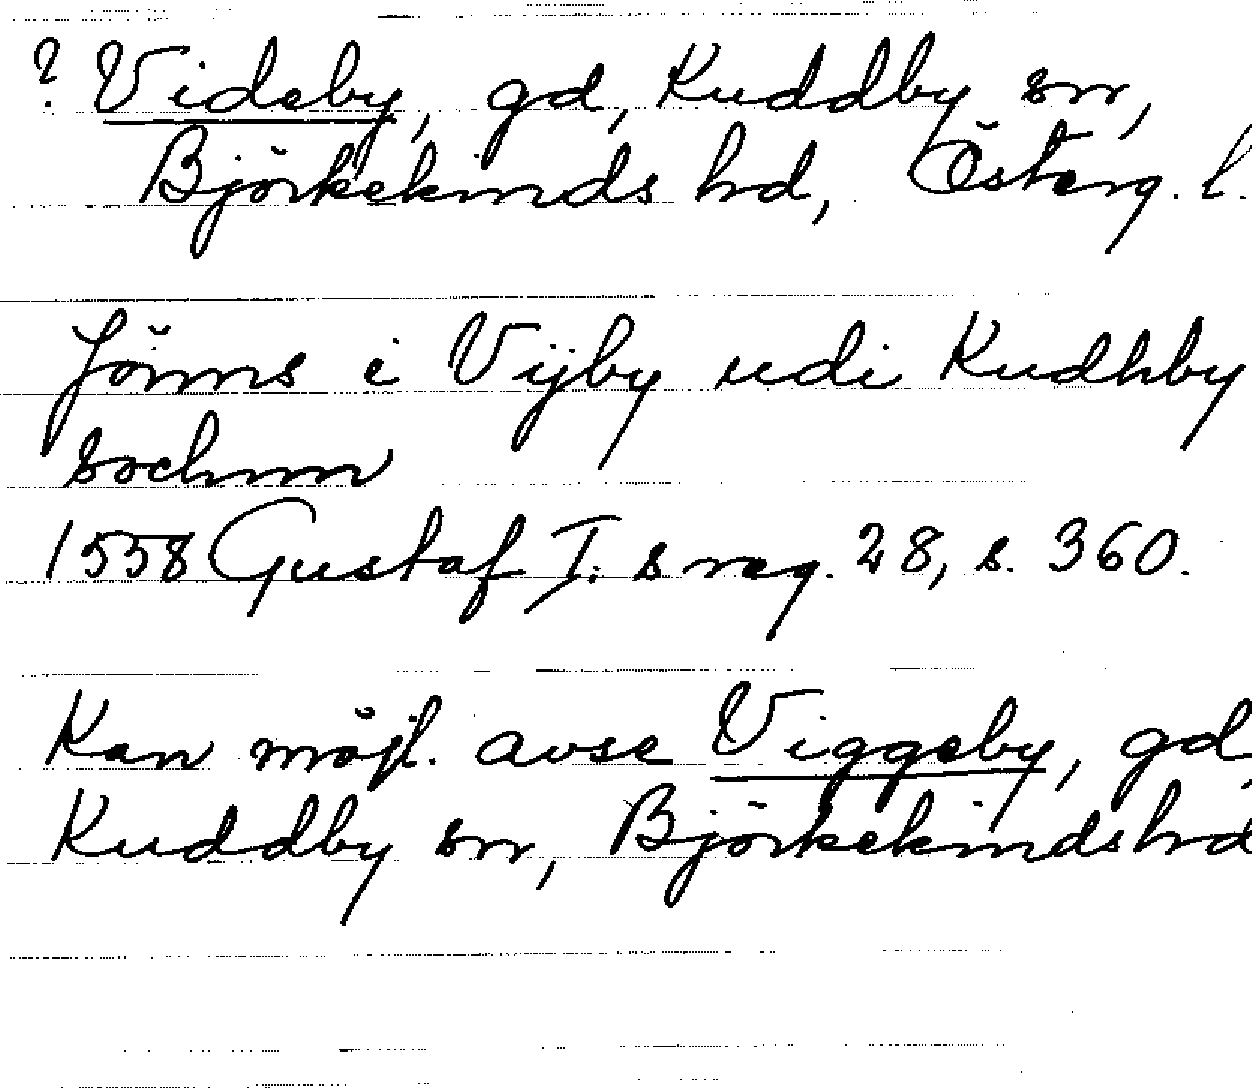 ? Videby, gd, Kuddby sn,
Björkekinds hd, Österg. l.
Jönns i Vijby udi Kudhby
sochnn
1558 Gustaf I:s reg. 28, s. 360.
Kan möjl. avse Viggeby, gd,
Kuddby sn, Björkekinds hd